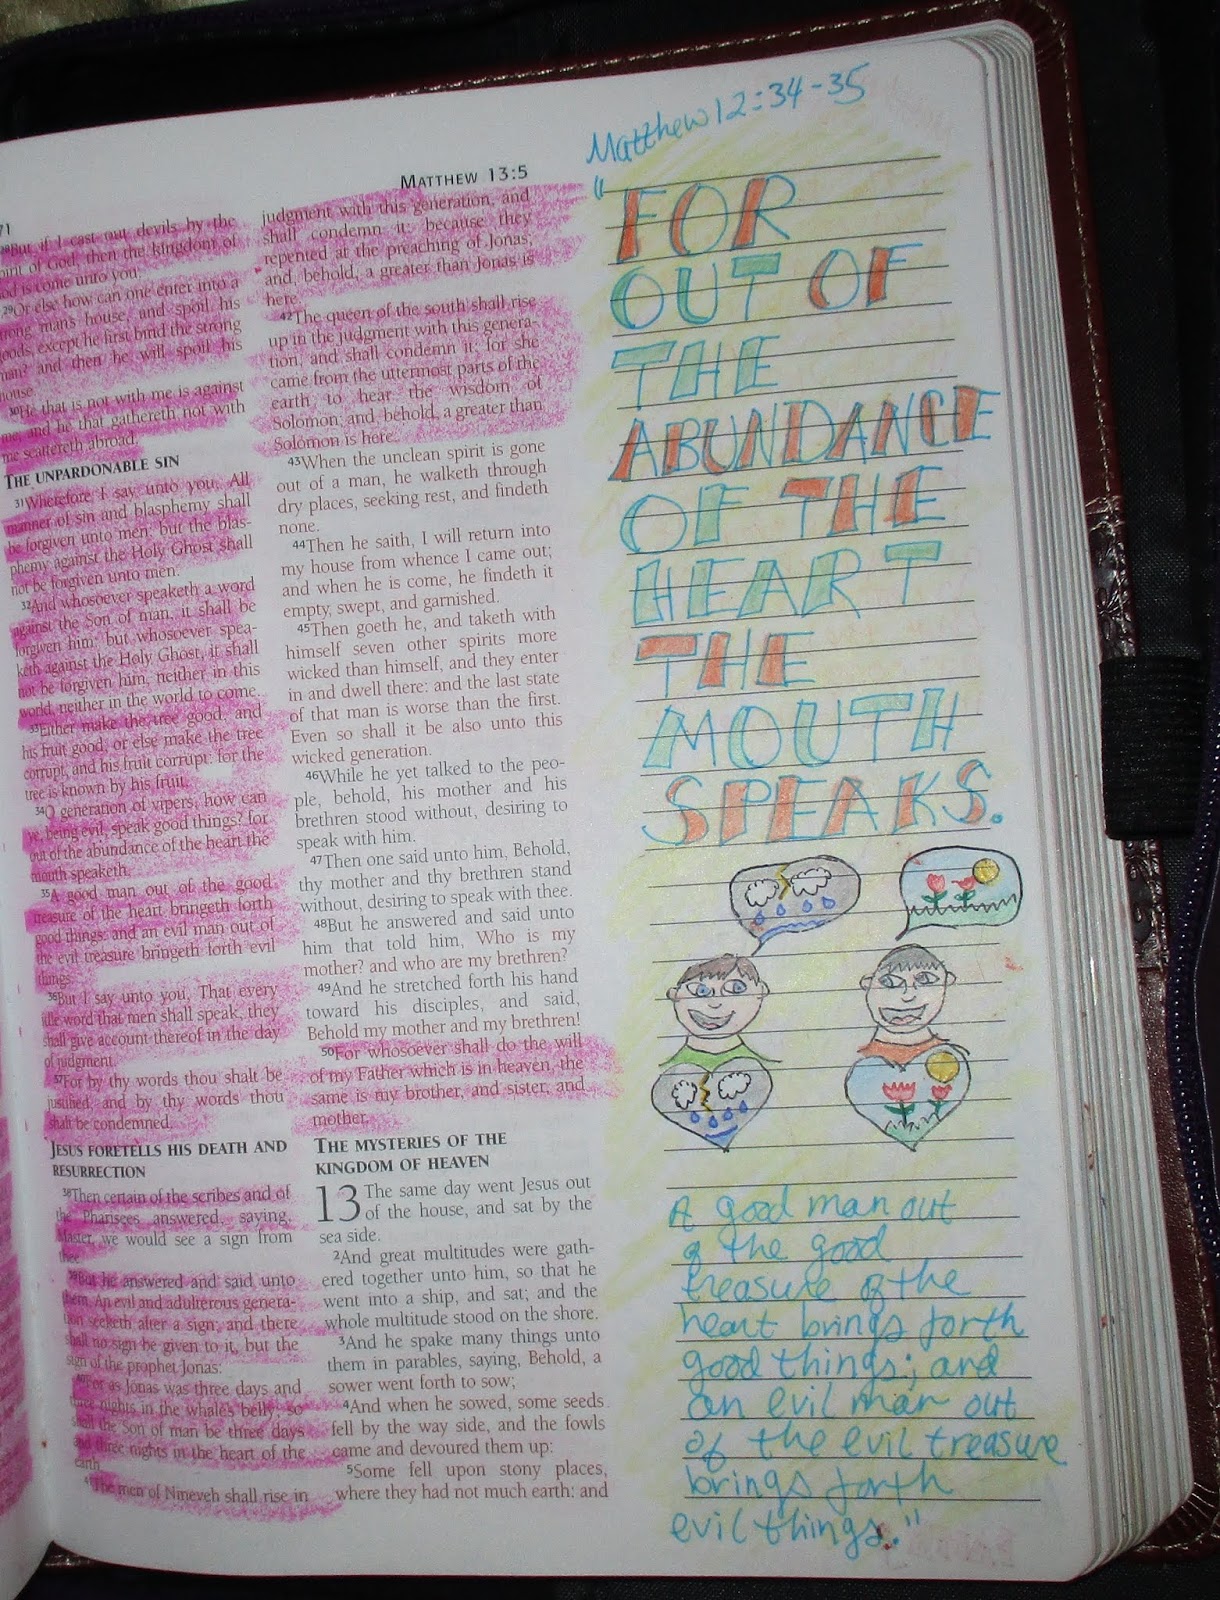 71
MATTHEW 13:5
28But if I cast out devils by the
of God, then the kingdom of
is come unto you.
29Or else how can one enter into a
man's house, and spoil his
goods, except he first bind the strong
man? and then he will spoil his
house.
30He that is not with me is against
me; and he that gathereth not with
me scattereth abroad.
THE UNPARDONABLE SIN
31Wherefore I say unto you, All
manner of sin and blasphemy shall
be forgiven unto men: but the blas-
phemy against the Holy Ghost shall
not be forgiven unto men.
32And whosoever speaketh a word
against the Son of man, it shall be
forgiven him: but whosoever spea-
keth against the Holy Ghost, it shall
not be forgiven him, neither in this
world, neither in the world to come.
33Either make the tree good, and
his fruit good; or else make the tree
corrupt, and his fruit corrupt: for the
tree is known by his fruit.
34O generation of vipers, how can
ye, being evil, speak good things? for
out of the abundance of the heart the
mouth speaketh.
35A good man out of the good
treasure of the heart bringeth forth
good things: and an evil man out of
the evil treasure bringeth forth evil
things.
36But I say unto you, That every
idle word that men shall speak, they
shall give account thereof in the day
of judgment.
37For by thy words thou shalt be
justified, and by thy words thou
shalt be condemned.
JESUS FORETELLS HIS DEATH AND
RESURRECTION
38Then certain of the scribes and of
the Pharisees answered, saying,
Master, we would see a sign from
thee.
39But he answered and said unto
them, An evil and adulterous genera-
tion seeketh after a sign; and there
shall no sign be given to it, but the
sign of the prophet Jonas:
40For as Jonas was three days and
three nights in the whale's belly; so
shall the Son of man be three days
and three nights in the heart of the
earth.
41The men of Nineveh shall rise in
judgment with this generation, and
shall condemn it: because they
repented at the preaching of Jonas;
and, behold, a greater than Jonas is
here.
42The queen of the south shall rise
up in the judgment with this genera-
tion, and shall condemn it: for she
came from the uttermost parts of the
earth to hear the wisdom of
Solomon; and, behold, a greater than
Solomon is here.
43When the unclean spirit is gone
out of a man, he walketh through
dry places, seeking rest, and findeth
none.
44Then he saith, I will return into
my house from whence I came out;
and when he is come, he findeth it
empty, swept, and garnished.
45Then goeth he, and taketh with
himself seven other spirits more
wicked than himself, and they enter
in and dwell there: and the last state
of that man is worse than the first.
Even so shall it be also unto this
wicked generation.
46While he yet talked to the peo-
ple, behold, his mother and his
brethren stood without, desiring to
speak with him.
47Then one said unto him, Behold,
thy mother and thy brethren stand
without, desiring to speak with thee.
48But he answered and said unto
him that told him, Who is my
mother? and who are my brethren?
49And he stretched forth his hand
toward his disciples, and said,
Behold my mother and my brethren!
50For whosoever shall do the will
of my Father which is in heaven, the
same is my brother, and sister, and
mother.
THE MYSTERIES OF THE
KINGDOM OF HEAVEN
13 The same day went Jesus out
of the house, and sat by the
sea side.
2And great multitudes were gath-
ered together unto him, so that he
went into a ship, and sat; and the
whole multitude stood on the shore.
3And he spake many things unto
them in parables, saying, Behold, a
sower went forth to sow;
4And when he sowed, some seeds
fell by the way side, and the fowls
came and devoured them up:
5Some fell upon stony places,
where they had not much earth: and
Matthew 12:34-35
"FOR
OUT OF
THE
ABUNDANCE
OF THE
HEART
THE
MOUTH
SPEAKS.
A good man out
of the good
treasure of the
heart brings forth
good things; and
an evil man out
of the evil treasure
brings forth
evil things."